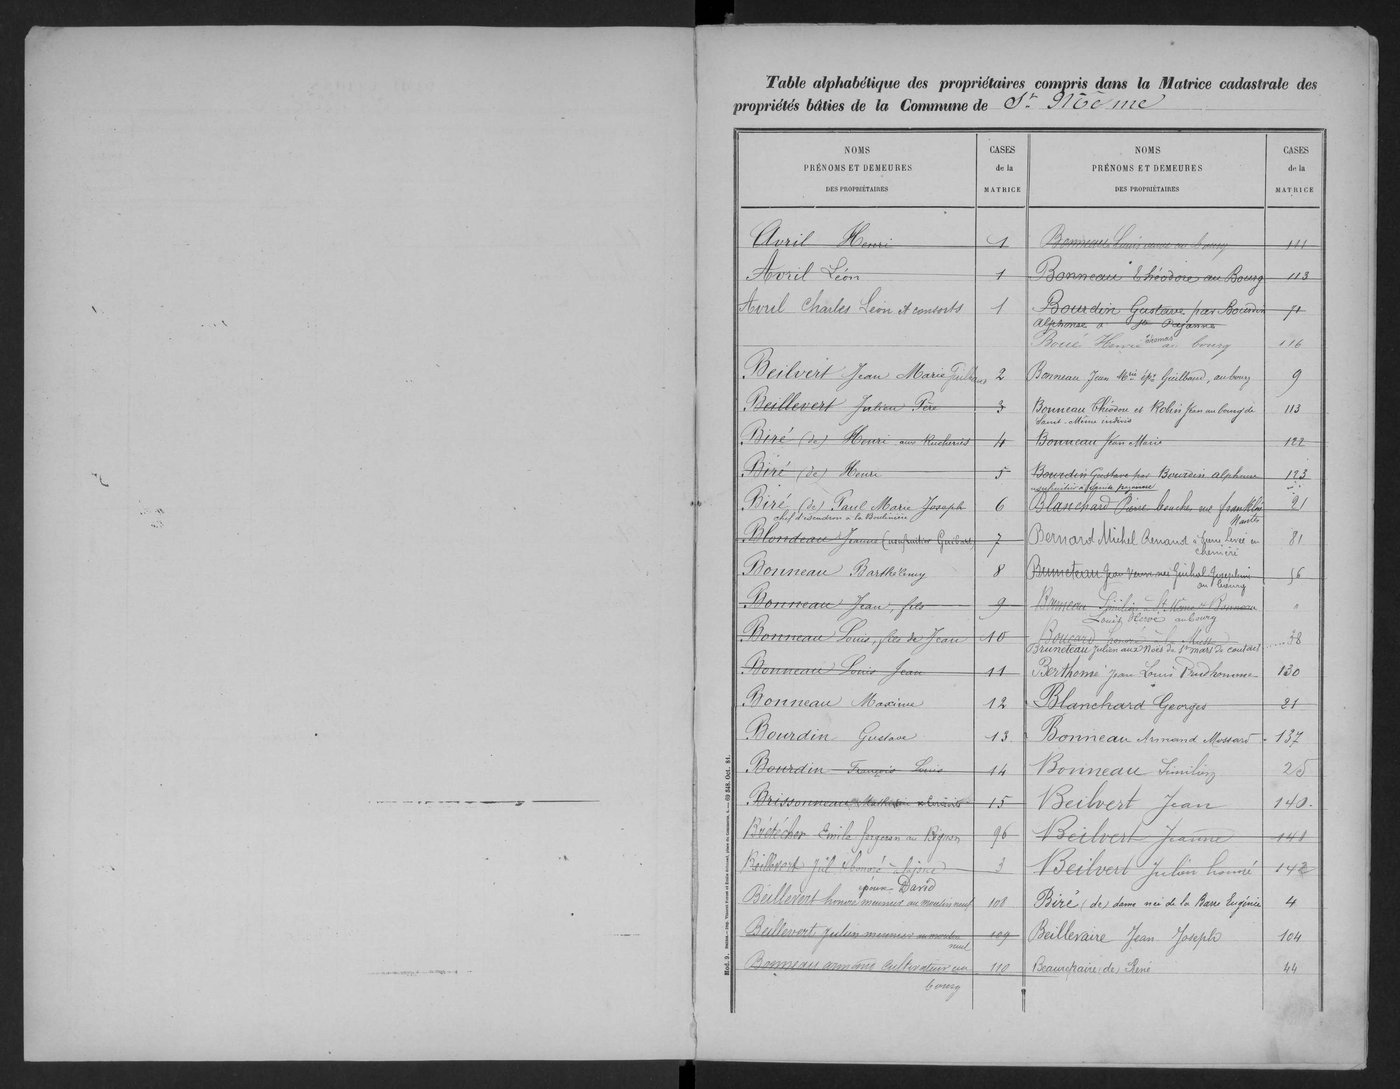 Table alphabétique des propriétaires compris dans la Matrice cadastrale des
propriétés bâties de la Commune de St Même
NOMS
PRÉNOMS ET DEMEURES
DES PROPRIÉTAIRES
CASES
de la
MATRICE
Avril Henri 1
Avril Léon 1
Avril Charles Léon et consorts 1
Beilvert Jean Marie 2
Beillevert Julien Père 3
Biré (de) Henri aux Rucheries 4
Biré (de) Henri 5
Biré (de) Paul Marie Joseph 6
chef d'escadron à la Boutinière
Blondeau Jeanne (usufruitier Guibert) 7
Bonneau Barthélemy 8
Bonneau Jean, fils 9
Bonneau Louis, fils de Jean 10
Bonneau Louis Jean 11
Bonneau Maxime 12
Bourdin Gustave 13
Bourdin François Louis 14
Brissonneau 15
Bretécher Emile forgeron au Pignon 96
Beillevert Jul. honoré 3
époux David
Beillevert honoré meunier au moulin neuf 108
Beillevert Julien meunier au moulin 109
neuf
Bonneau armand cultivateur au 110
bourg
NOMS
PRÉNOMS ET DEMEURES
DES PROPRIÉTAIRES
CASES
de la
MATRICE
Bonneau Louis au bourg 111
Bonneau Théodore au Bourg 113
Bourdin Gustave par Bourdin 71
alphonse à Ste Pazanne
Boué Henri au bourg 116
Bonneau Jean Mie épx Guilbaud, au bourg 9
Bonneau Théodore et Robin Jean au bourg de 113
Saint-Même indivis
Bonneau Jean Marie 122
Bourdin Gustave par Bourdin alphonse 123
usufruitier à Sainte pazanne
Blanchard Pierre boucher rue franklin 21
Nantes
Bernard Michel Renaud à levée en 81
cheméré
Bruneteau Jean Veuve née Guihal Joséphine 56
au bourg
Bruneau Similien à St Même et Bonneau "
Louis Hervé au bourg
Boucard honoré à la 38
Bruneteau Julien aux Noës de St mars de coutais
Berthomé Jean Louis Prudhomme 130
Blanchard Georges 21
Bonneau Armand Mossard 137
Bonneau Similien 25
Beilvert Jean 140
Beilvert Jeanne 141
Beilvert Julien honoré 142
Biré (de) dame née de la Barre Eugénie 4
Beillevaire Jean Joseph 104
Beauchaire (de) René 44
Mod. 9.